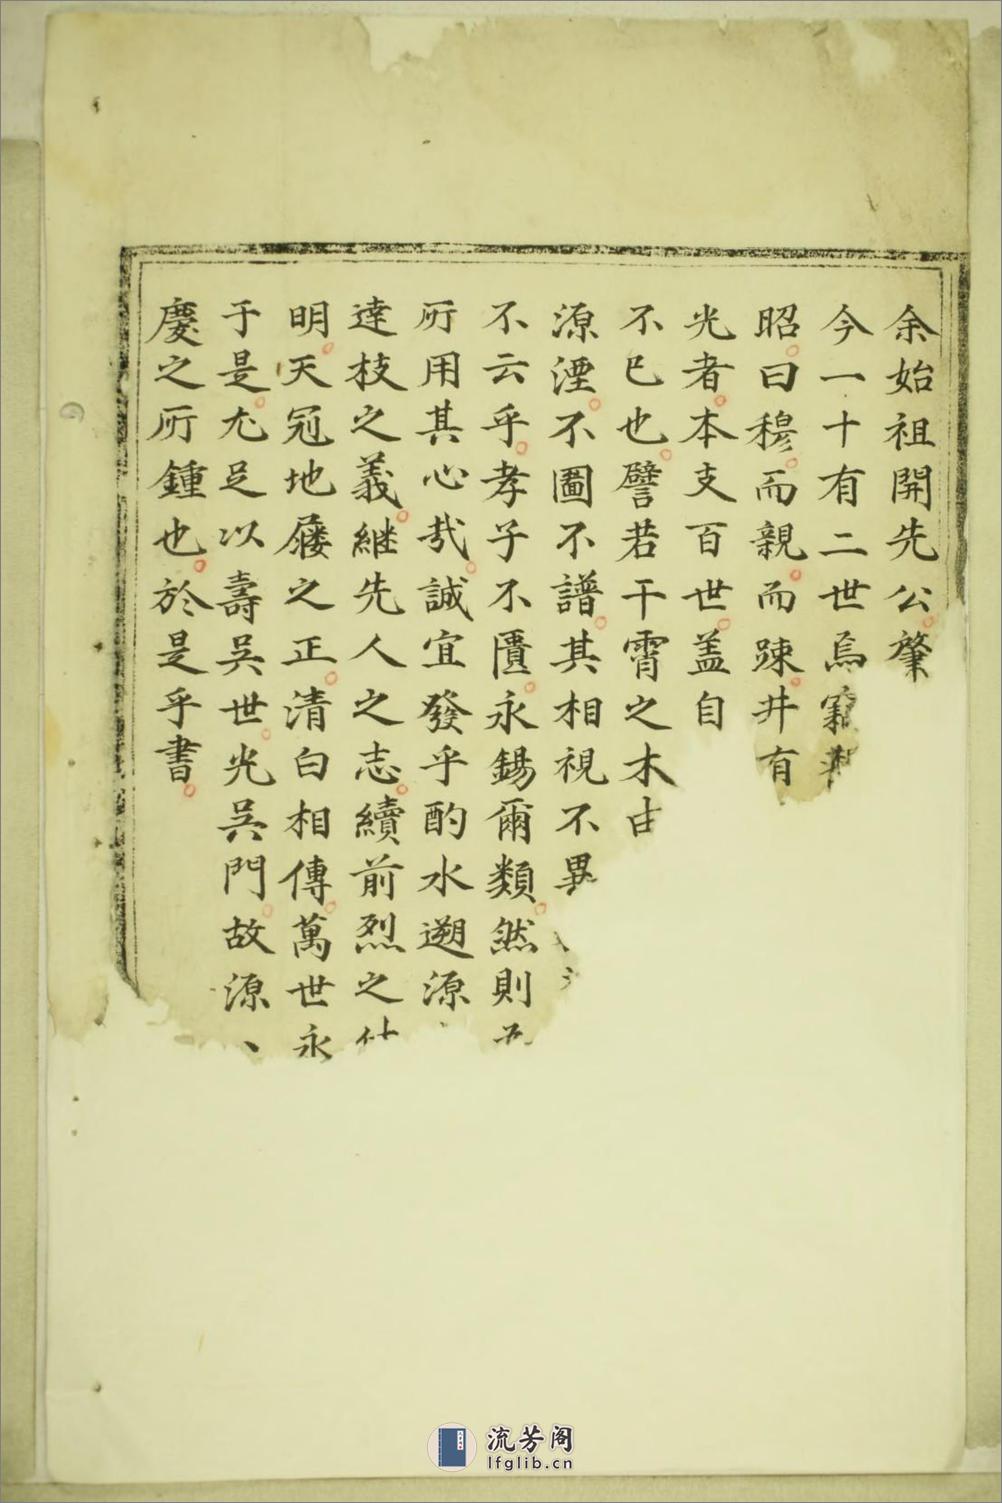 余始祖開先公肇
今一十有二世焉
昭曰穆而親而踈井有
光者本支百世盖自
不已也譬若干霄之木由
源湮不圖不譜其相視不異
不云乎孝子不匱永錫爾類然則
所用其心哉誠宜發乎酌水遡源
達枝之義継先人之志續前烈之
明天冠地屨之正清白相傳萬世永
于是尤足以壽吳世光吳門故源
慶之所鍾也於是乎書
流芳阁
lfglib.cn